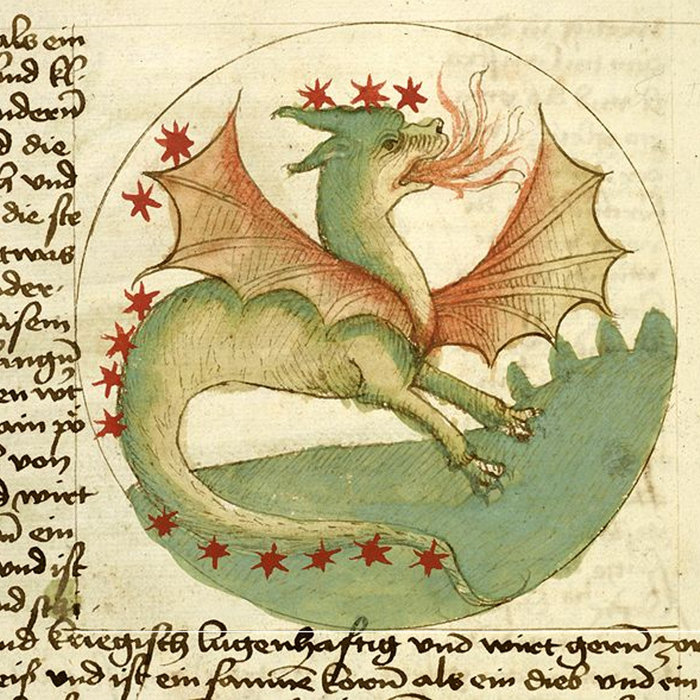 als ein
und kl.
ndern̄
d die
h und
die ste
twas
der.
isem
angn̄
en wt
ain pö
von
d wirt
n̄ ein
und ist
nd sti
nd kriegisch lugenhafftig vnd wirt gern̄ zor
eiß vnd ist ein korn̄ als ein dieb vnd ein